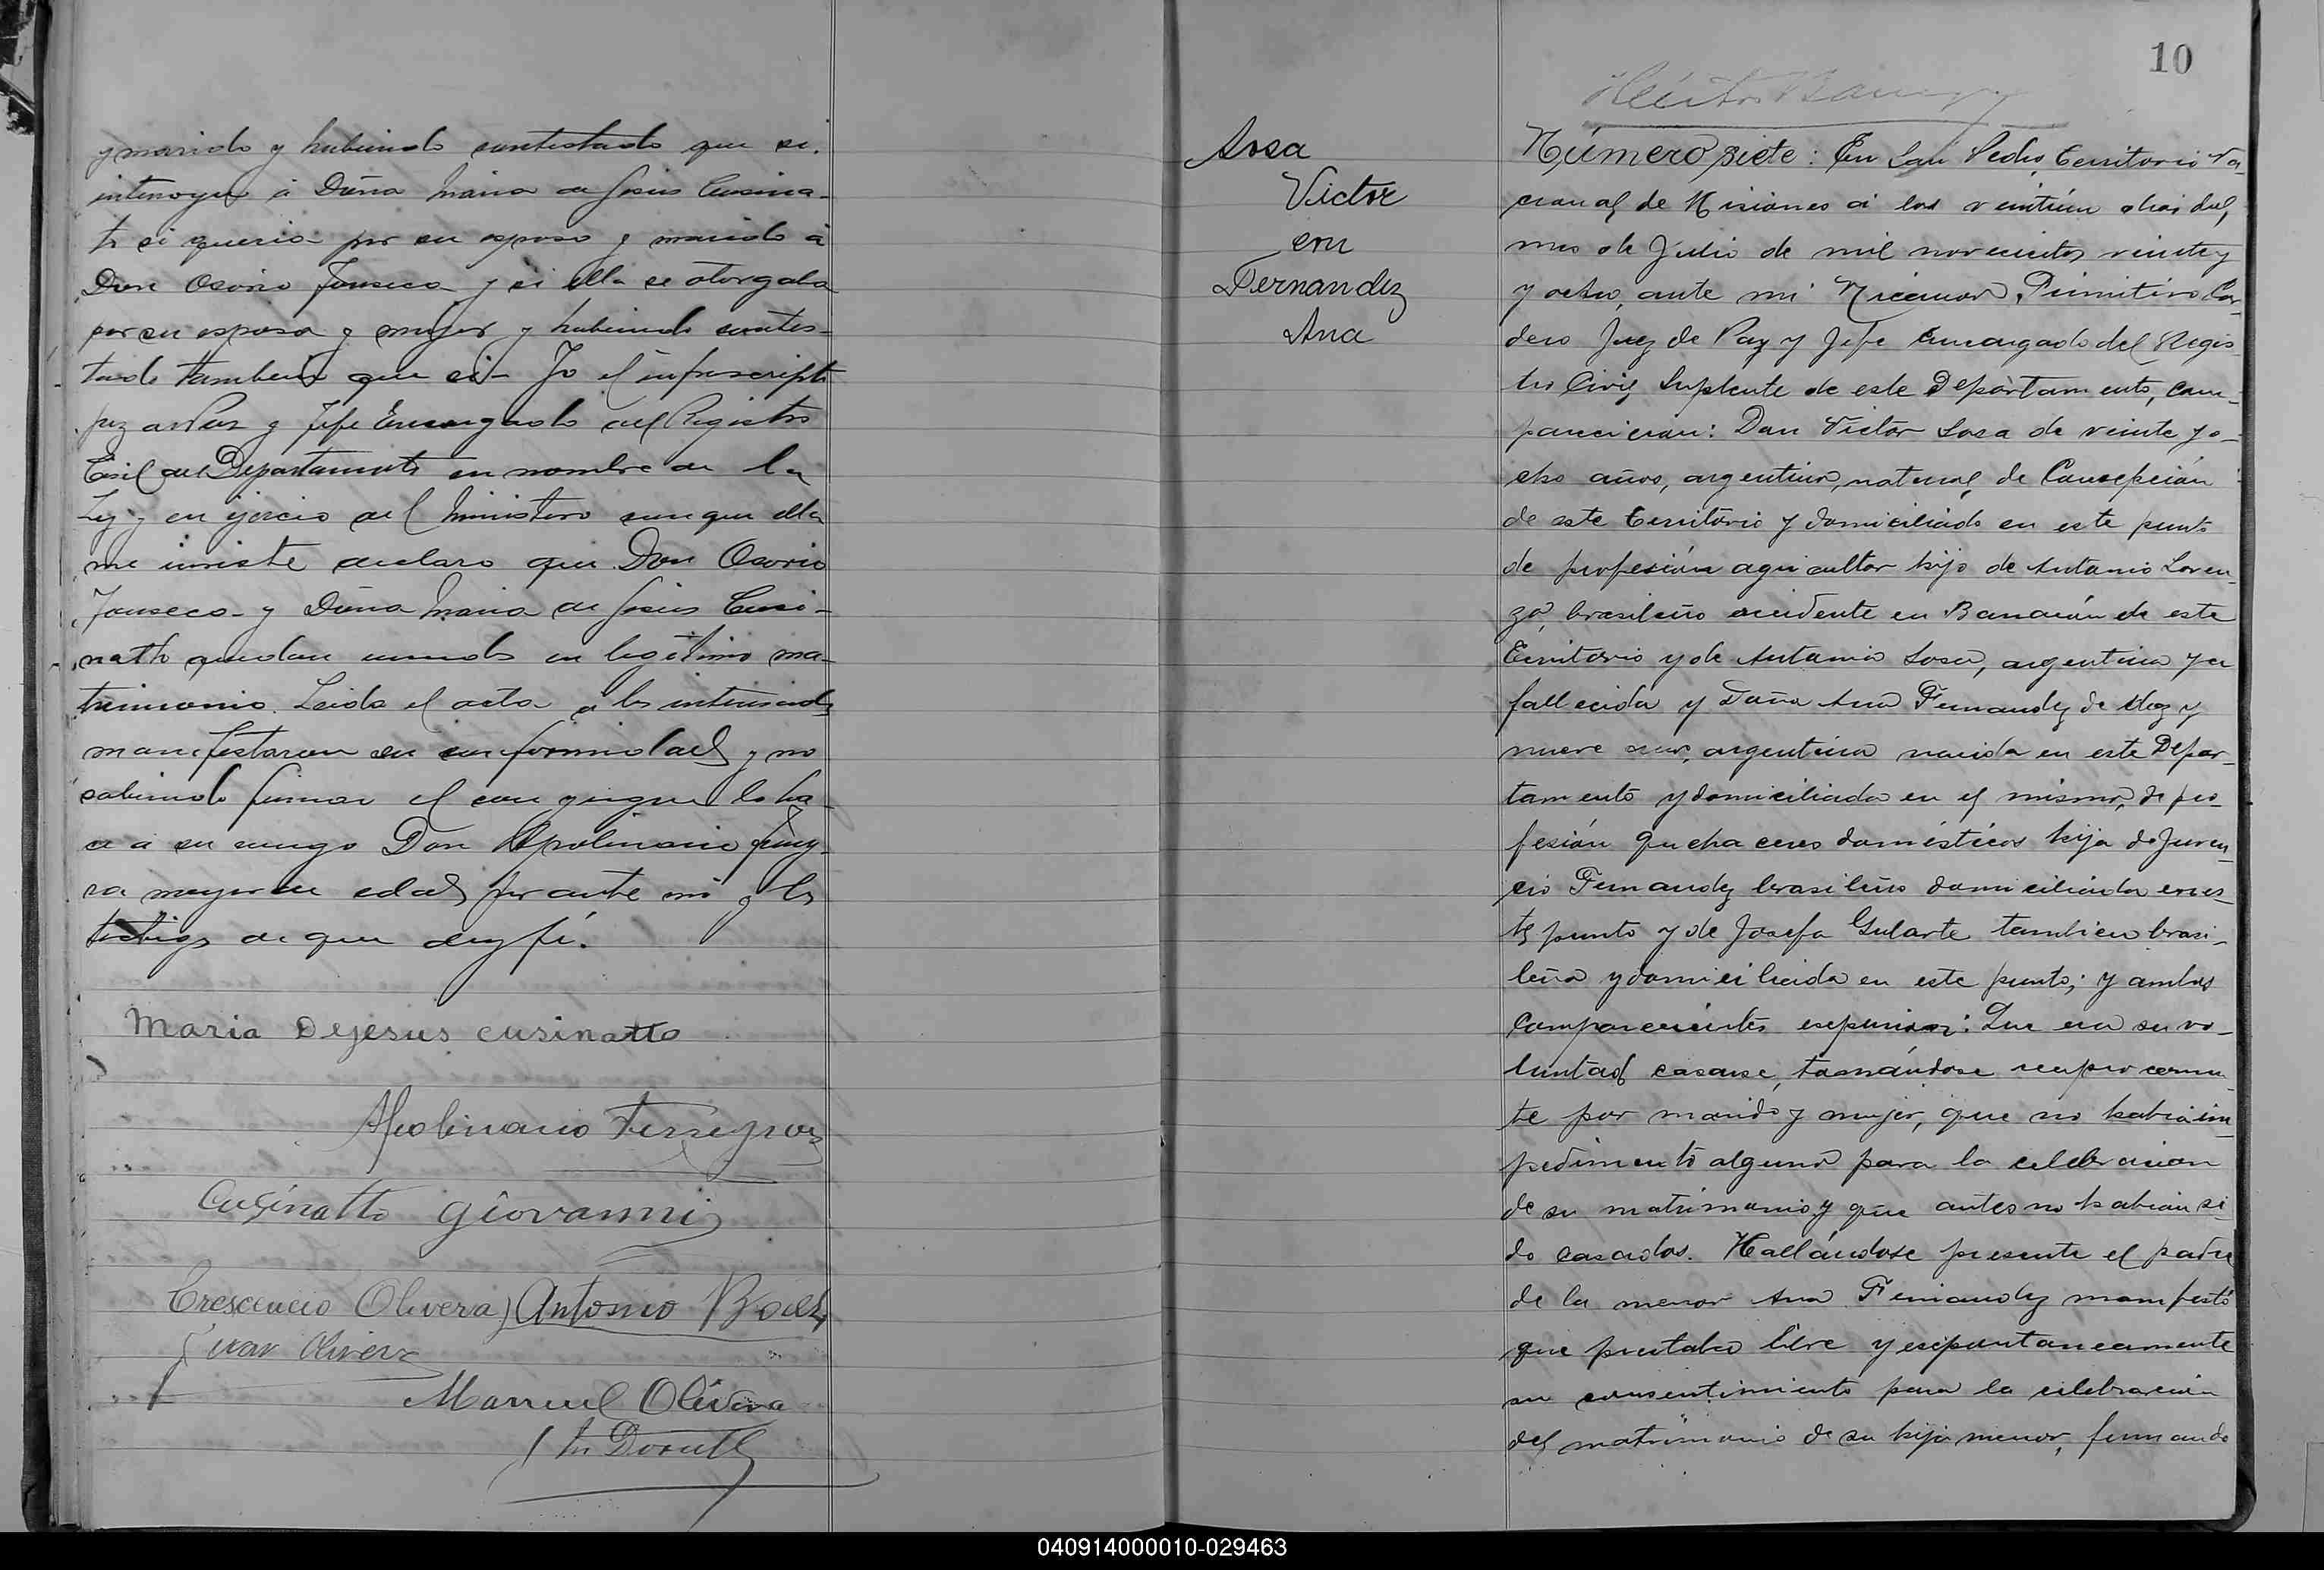 y marido y habiendo contestado que si.
interrogué á Doña Maria de Jesus Cusina-
to si queria por su esposo y marido á
Don Osorio Fonseca y si ella se otorgaba
por su esposa y mujer y habiendo contes-
tado tambien que si - Yo el infrascripto
juez de Paz y Jefe Encargado del Registro
Civil del Departamento en nombre de la
Ley y en ejercio del ministerio con que ella
me inviste declaro que Don Osorio
Fonseca y Doña Maria de Jesus Cusi-
natto quedan unidos en legítimo ma-
trimonio. Leida el acta a los interesados
manifestaron su conformidad y no
sabiendo firmar el conyuge lo ha-
ce á su ruego Don Apolinario
mayor de edad por ante mi y los
testigos de que doy fé.
Maria Dejesus cusinatto
Apolinario
Cusinatto giovanni
Crescencio Olivera Antonio
Juan Olivera
Manuel Olivera
10
Sosa
Victor
con
Fernandez
Ana
Número siete: En San Pedro, Territorio Na-
cional de Misiones á los veintiun dias del
mes de Julio de mil novecientos veinte y
y ocho, ante mi Nicanor Primitivo Cor-
dero Juez de Paz y Jefe Encargado del Regis-
tro Civil Suplente de este Departamento, com-
parecieron: Don Victor Sosa de veinte y o-
cho años, argentino, natural de Concepción
de este territorio y domiciliado en este punto
de profesión agricultor hijo de Antonio Loren-
zo, brasileño recidente en Bonpland de este
Territorio y de Antonia Sosa, argentina ya
fallecida y Doña Ana Fernandez de diez y
nueve años, argentina nacida en este Depar-
tamento y domiciliada en el mismo, de pro-
fesión quehaceres domésticos hija de Juven-
cio Fernandez brasileño domiciliado en es-
te punto y de Josefa Gularte tambien brasi-
leña y domiciliada en este punto; y ambos
comparecientes expusieron: Que era su vo-
luntad casarse, tomándose reciprocamen-
te por marido y mujer, que no habia im-
pedimento alguno para la celebracion
de su matrimonio y que antes no habian si-
do casados. Hallándose presente el padre
de la menor Ana Fernandez manifestó
que prestaba libre y expontaneamente
su consentimiento para la celebración
del matrimonio de su hija menor, firmando
040914000010-029463